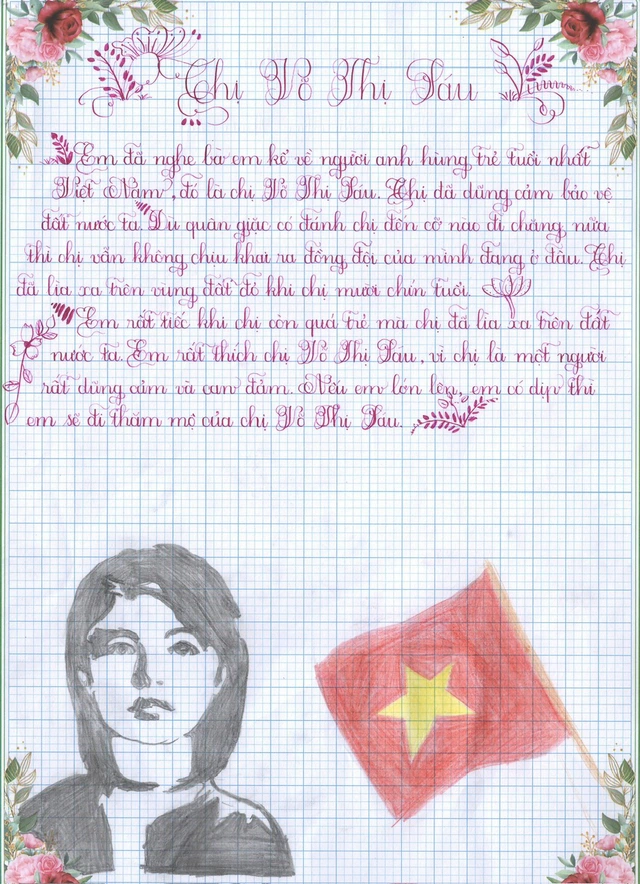 Chị Võ Thị Sáu
Em đã nghe bà em kể về người anh hùng trẻ tuổi nhất
Việt Nam, đó là chị Võ Thị Sáu. Chị đã dũng cảm bảo vệ
đất nước ta. Dù quân giặc có đánh chị đến cỡ nào đi chăng nữa
thì chị vẫn không chịu khai ra đồng đội của mình đang ở đâu. Chị
đã lìa xa trên vùng đất đỏ khi chị mười chín tuổi.
Em rất tiếc khi chị còn quá trẻ mà chị đã lìa xa trên đất
nước ta. Em rất thích chị Võ Thị Sáu, vì chị là một người
rất dũng cảm và can đảm. Nếu em lớn lên, em có dịp thì
em sẽ đi thăm mộ của chị Võ Thị Sáu.